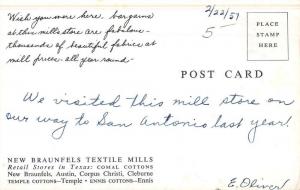 Wish you were here, bargains
at this mills store are fabulous -
thousands of beautiful fabrics at
mill prices - all year round -
2/22/57
5
PLACE
STAMP
HERE
POST CARD
We visited this mill store on
our way to San Antonio last year!
NEW BRAUNFELS TEXTILE MILLS
Retail Stores in Texas: COMAL COTTONS
New Braunfels, Austin, Corpus Christi, Cleburne
TEMPLE COTTONS—Temple • ENNIS COTTONS—Ennis
E. Oliver